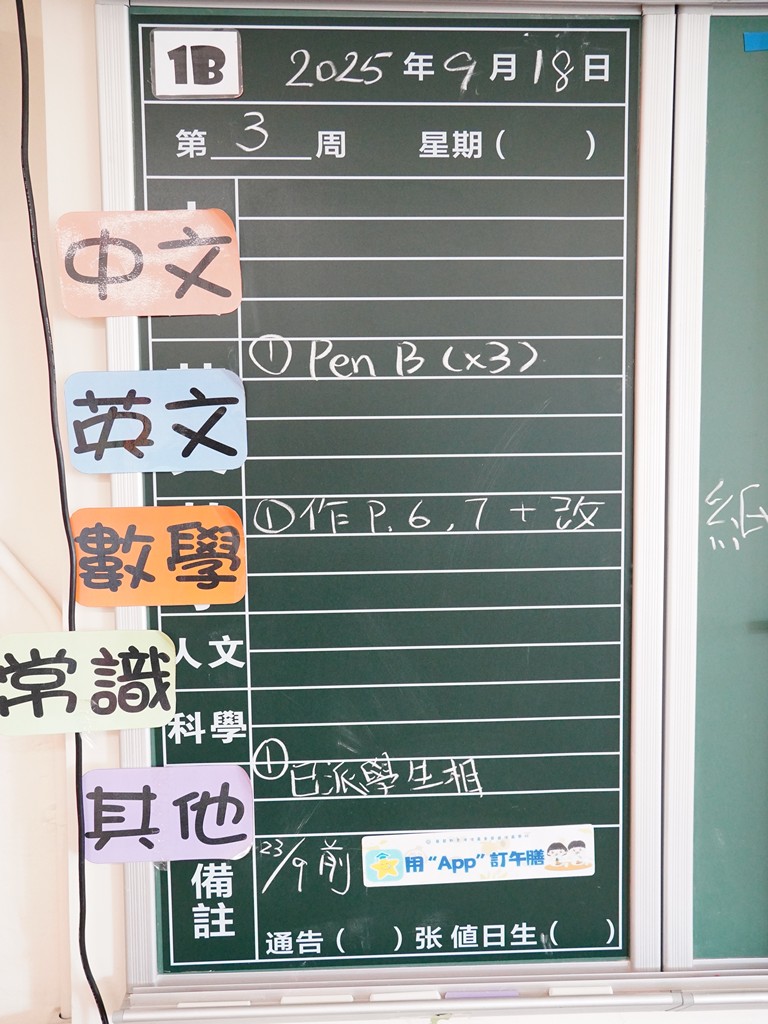 1B 2025年9月18日
第3周 星期( )
中文
① Pen B (x3)
英文
① 作 P. 6, 7 + 改
數學
人文
常識
科學
① 已派學生相
其他
23/9前 用“App”訂午膳
備註
通告( )张 值日生( )
紙